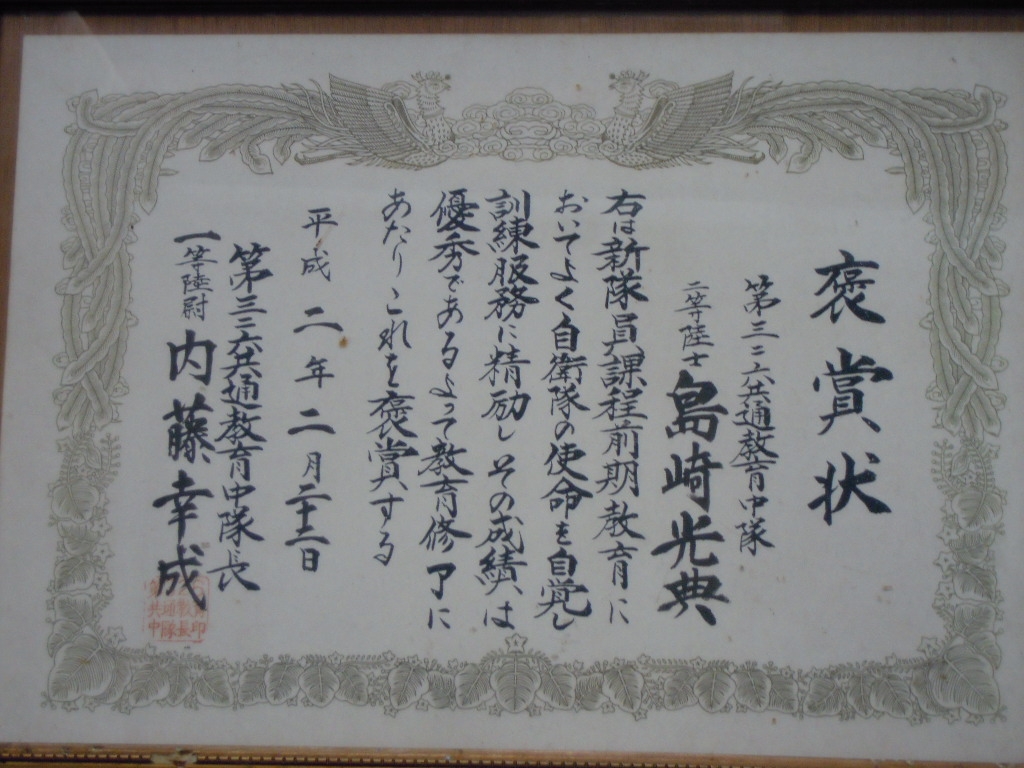 褒賞状
第三二六共通教育中隊
二等陸士 島崎光典
右は新隊員課程前期教育に
おいてよく自衛隊の使命を自覚し
訓練服務に精励しその成績は
優秀であるよって教育修了に
あたりこれを褒賞する
平成二年二月二十二日
第三二六共通教育中隊長
一等陸尉 内藤幸成